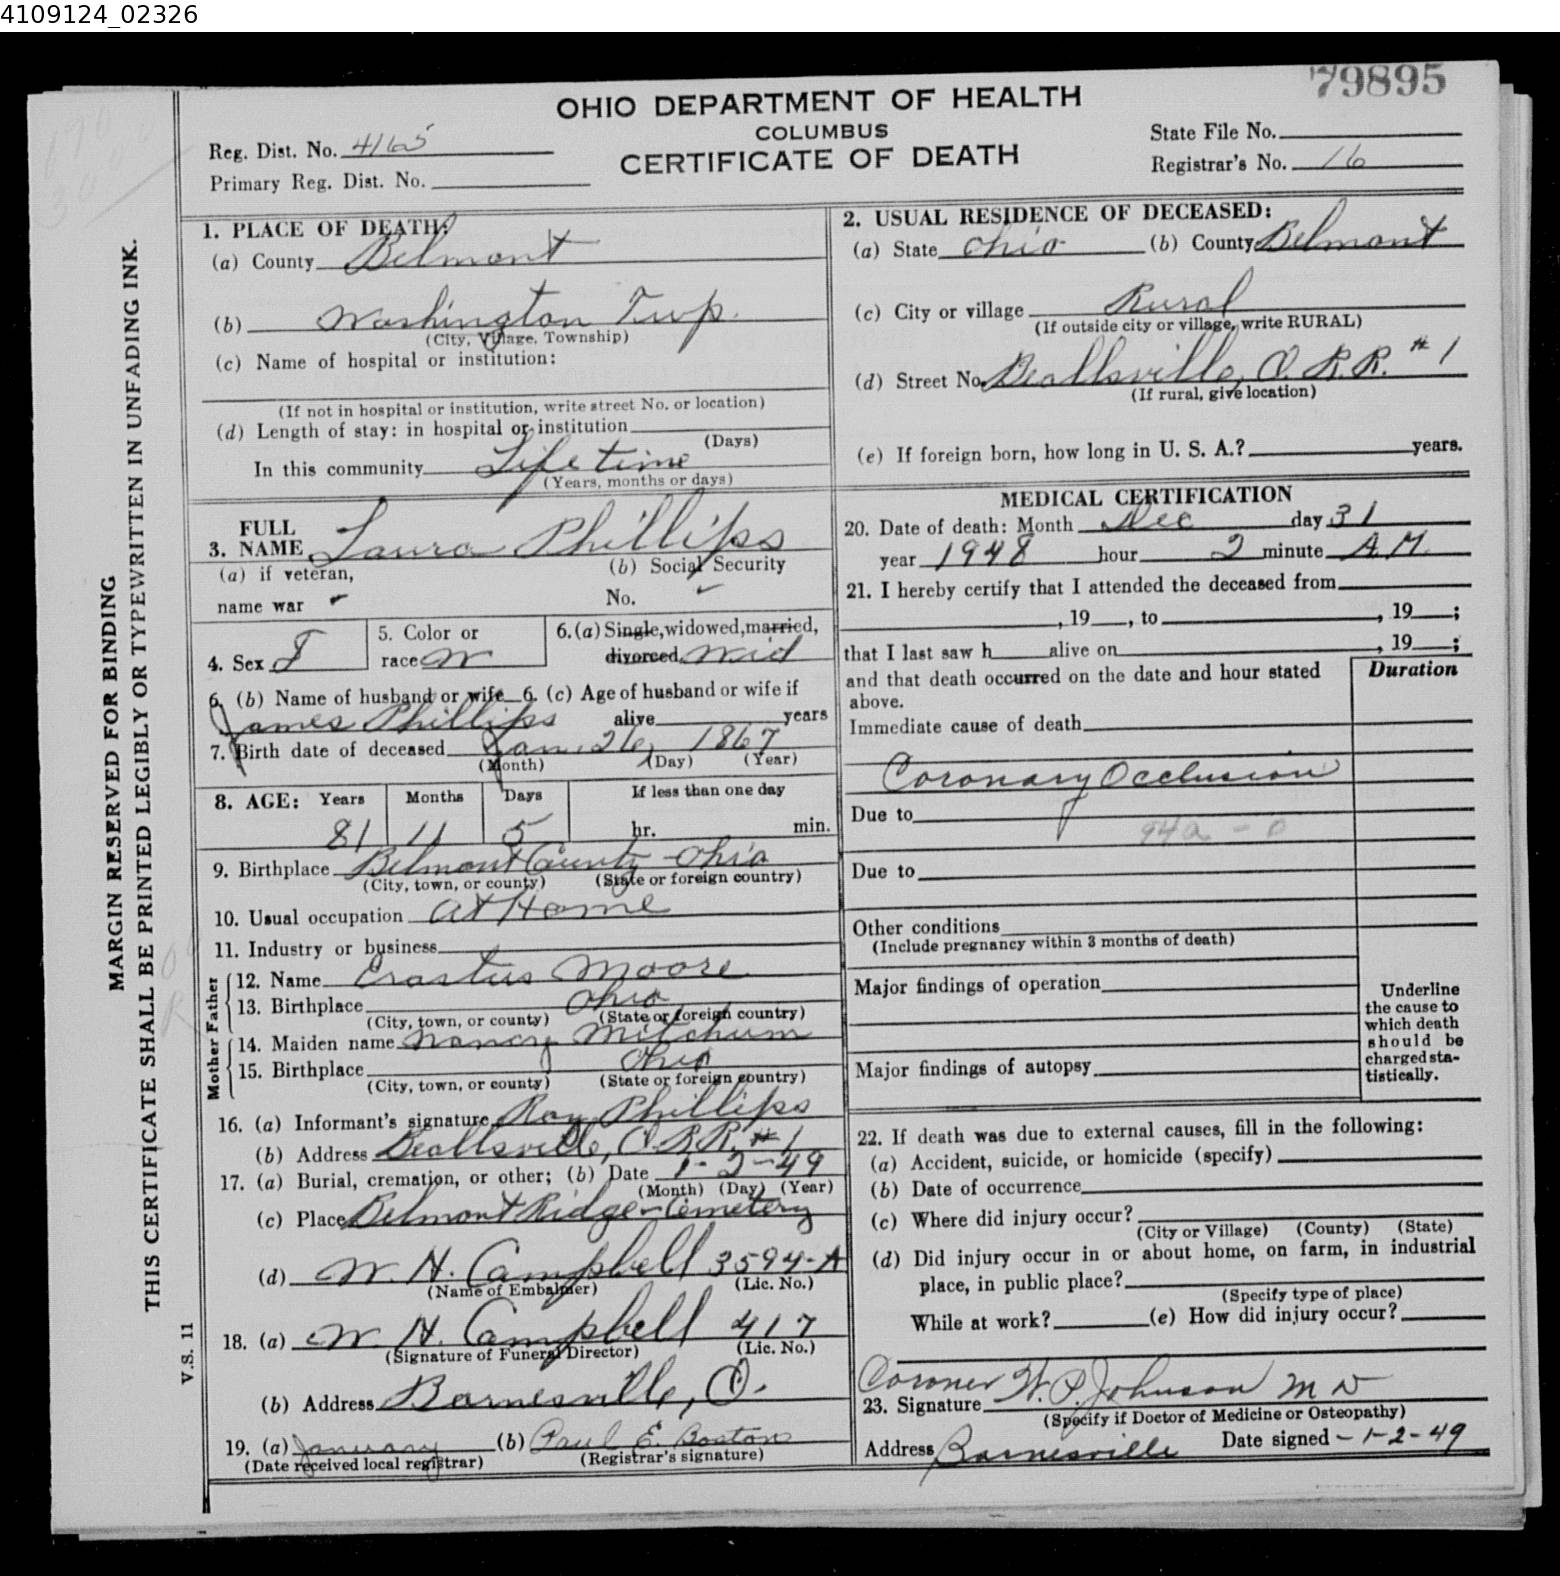 4109124_02326
79895
OHIO DEPARTMENT OF HEALTH
COLUMBUS
CERTIFICATE OF DEATH
Reg. Dist. No. 4165
Primary Reg. Dist. No.
State File No.
Registrar's No. 16
MARGIN RESERVED FOR BINDING
THIS CERTIFICATE SHALL BE PRINTED LEGIBLY OR TYPEWRITTEN IN UNFADING INK.
V.S. 11
1. PLACE OF DEATH:
(a) County Belmont
(b) Washington Twp.
(City, Village, Township)
(c) Name of hospital or institution:
(If not in hospital or institution, write street No. or location)
(d) Length of stay: in hospital or institution
(Days)
In this community Life time
(Years, months or days)
2. USUAL RESIDENCE OF DECEASED:
(a) State Ohio (b) County Belmont
(c) City or village Rural
(If outside city or village, write RURAL)
(d) Street No. Beallsville, O. R.R. #1
(If rural, give location)
(e) If foreign born, how long in U. S. A.? years.
3. FULL NAME Laura Phillips
(a) if veteran, name war
(b) Social Security No.
4. Sex F
5. Color or race W
6. (a) Single, widowed, married, divorced, Wid
6. (b) Name of husband or wife 6. (c) Age of husband or wife if
James Phillips alive years
7. Birth date of deceased Jan. 26, 1867
(Month) (Day) (Year)
8. AGE: Years Months Days If less than one day
81 11 5 hr. min.
9. Birthplace Belmont County - Ohio
(City, town, or county) (State or foreign country)
10. Usual occupation At Home
11. Industry or business
Father
12. Name Erastus Moore
13. Birthplace Ohio
(City, town, or county) (State or foreign country)
Mother
14. Maiden name Nancy Mitchum
15. Birthplace Ohio
(City, town, or county) (State or foreign country)
16. (a) Informant's signature Roy Phillips
(b) Address Beallsville, O. R.R. #1
17. (a) Burial, cremation, or other; (b) Date 1-2-49
(Month) (Day) (Year)
(c) Place Belmont Ridge - Cemetery
(d) W. H. Campbell 3594-A
(Name of Embalmer) (Lic. No.)
18. (a) W. H. Campbell 417
(Signature of Funeral Director) (Lic. No.)
(b) Address Barnesville, O.
19. (a) January (b) Paul E. Boston
(Date received local registrar) (Registrar's signature)
MEDICAL CERTIFICATION
20. Date of death: Month Dec day 31
year 1948 hour 2 minute A.M.
21. I hereby certify that I attended the deceased from
, 19 , to , 19 ;
that I last saw h alive on , 19 ;
and that death occurred on the date and hour stated above.
Duration
Immediate cause of death
Coronary Occlusion
Due to
94a - 0
Due to
Other conditions
(Include pregnancy within 3 months of death)
Major findings of operation
Major findings of autopsy
Underline the cause to which death should be charged statistically.
22. If death was due to external causes, fill in the following:
(a) Accident, suicide, or homicide (specify)
(b) Date of occurrence
(c) Where did injury occur?
(City or Village) (County) (State)
(d) Did injury occur in or about home, on farm, in industrial
place, in public place?
(Specify type of place)
While at work? (e) How did injury occur?
Coroner W. P. Johnson M D
23. Signature
(Specify if Doctor of Medicine or Osteopathy)
Address Barnesville Date signed - 1-2-49